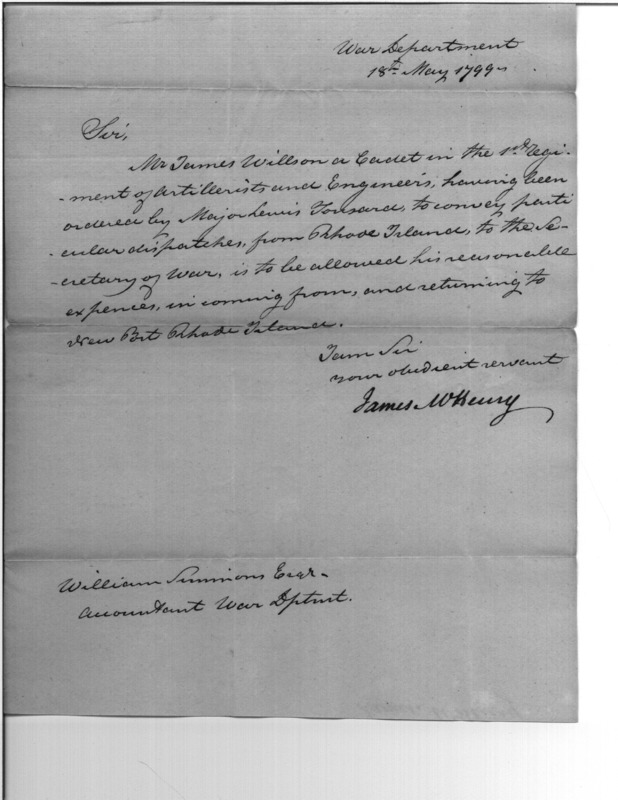 War Department
18th May 1799
Sir,
Mr James Willson a Cadet in the 1st Regi-
-ment of Artillerists and Engineers, having been
ordered by Major Lewis Tousard, to convey parti
-cular dispatches, from Rhode Island, to the Se-
-cretary of War, is to be allowed his reasonable
expences, in coming from, and returning to
New Port Rhode Island.
I am Sir
your obedient servant
James McHenry
William Simmons Esqr.
Accountant War Dptmt.